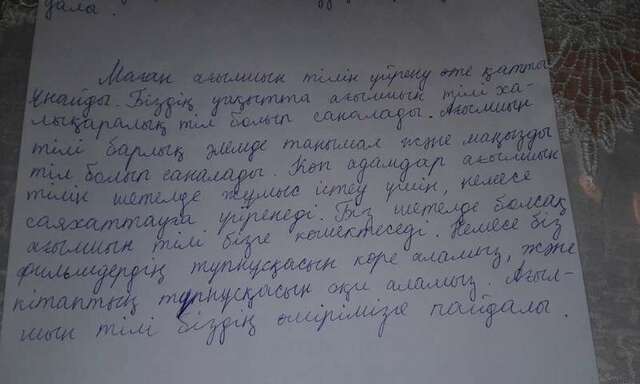 дала.
Маған ағылшын тілін үйрену өте қатты
ұнайды. Біздің уақытта ағылшын тілі ха-
лықаралық тіл болып саналады. Ағылшын
тілі барлық әлемде танымал және маңызды
тіл болып саналады. Көп адамдар ағылшын
тілін шетелде жұмыс істеу үшін, немесе
саяхаттауға үйренеді. Біз шетелде болсақ
ағылшын тілі бізге көшектеседі. Немесе біз
фильмдердің түпнұсқасын көре аламыз, және
кітаптың түпнұсқасын оқи аламыз. Ағыл-
шын тілі біздің өмірімізге пайдалы.